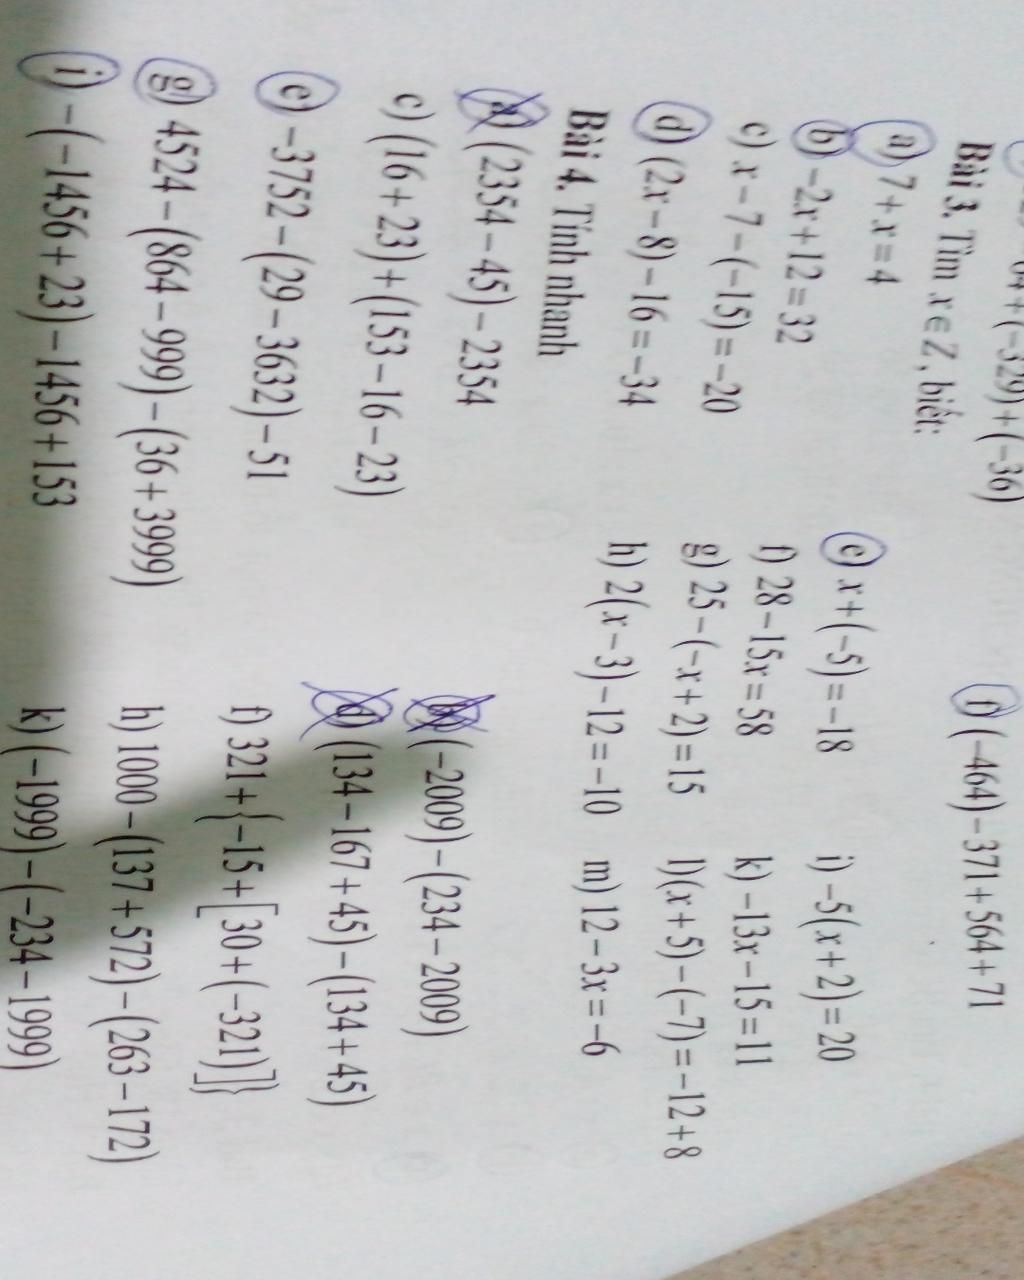 64 + (−329) + (−36)    f) (−464) − 371 + 564 + 71
Bài 3. Tìm x ∈ Z, biết:
a) 7 + x = 4    e) x + (−5) = −18    i) −5(x + 2) = 20
b) −2x + 12 = 32    f) 28 − 15x = 58    k) −13x − 15 = 11
c) x − 7 − (−15) = −20    g) 25 − (−x + 2) = 15    l) (x + 5) − (−7) = −12 + 8
d) (2x − 8) − 16 = −34    h) 2(x − 3) − 12 = −10    m) 12 − 3x = −6
Bài 4. Tính nhanh
a) (2354 − 45) − 2354    b) (−2009) − (234 − 2009)
c) (16 + 23) + (153 − 16 − 23)    d) (134 − 167 + 45) − (134 + 45)
e) −3752 − (29 − 3632) − 51    f) 321 + {−15 + [30 + (−321)]}
g) 4524 − (864 − 999) − (36 + 3999)    h) 1000 − (137 + 572) − (263 − 172)
i) −(−1456 + 23) − 1456 + 153    k) (−1999) − (−234 − 1999)